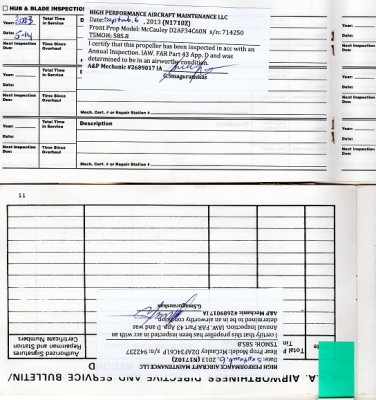 HUB & BLADE INSPECTION
Year: 2013
Total Time
in Service
Date:
5-14
Next Inspection
Due:
Time Since
Overhaul
HIGH PERFORMANCE AIRCRAFT MAINTENANCE LLC
Date: Septemb. 6, 2013 (N1710Z)
Front Prop Model: McCauley D2AF34C60N s/n: 714250
TSMOH: 585.8
I certify that this propeller has been inspected in acc with an
Annual Inspection. IAW. FAR Part 43 App. D and was
determined to be in an airworthy condition.
A&P Mechanic #2689017 IA
G.Smagoranskas
Mech. Cert. # or Repair Station #
Year:
Date:
Next Inspection
Due:
Year:
Total Time
in Service
Date:
Next Inspection
Due:
Time Since
Overhaul
Description
Mech. Cert. # or Repair Station #
Year:
Date:
Next Inspection
Due:
11
AIRWORTHINESS DIRECTIVE AND SERVICE BULLETIN/
RECORD
Authorized Signatures
Repairman and Station
Certificate Numbers
HIGH PERFORMANCE AIRCRAFT MAINTENANCE LLC
Date: Septemb. 6, 2013 (N1710Z)
Rear Prop Model: McCauley D2AF34C61P s/n: 942237
TSMOH: 585.8
I certify that this propeller has been inspected in acc with an
Annual Inspection. IAW. FAR Part 43 App. D and was
determined to be in an airworthy condition.
A&P Mechanic #2689017 IA
G.Smagoranskas